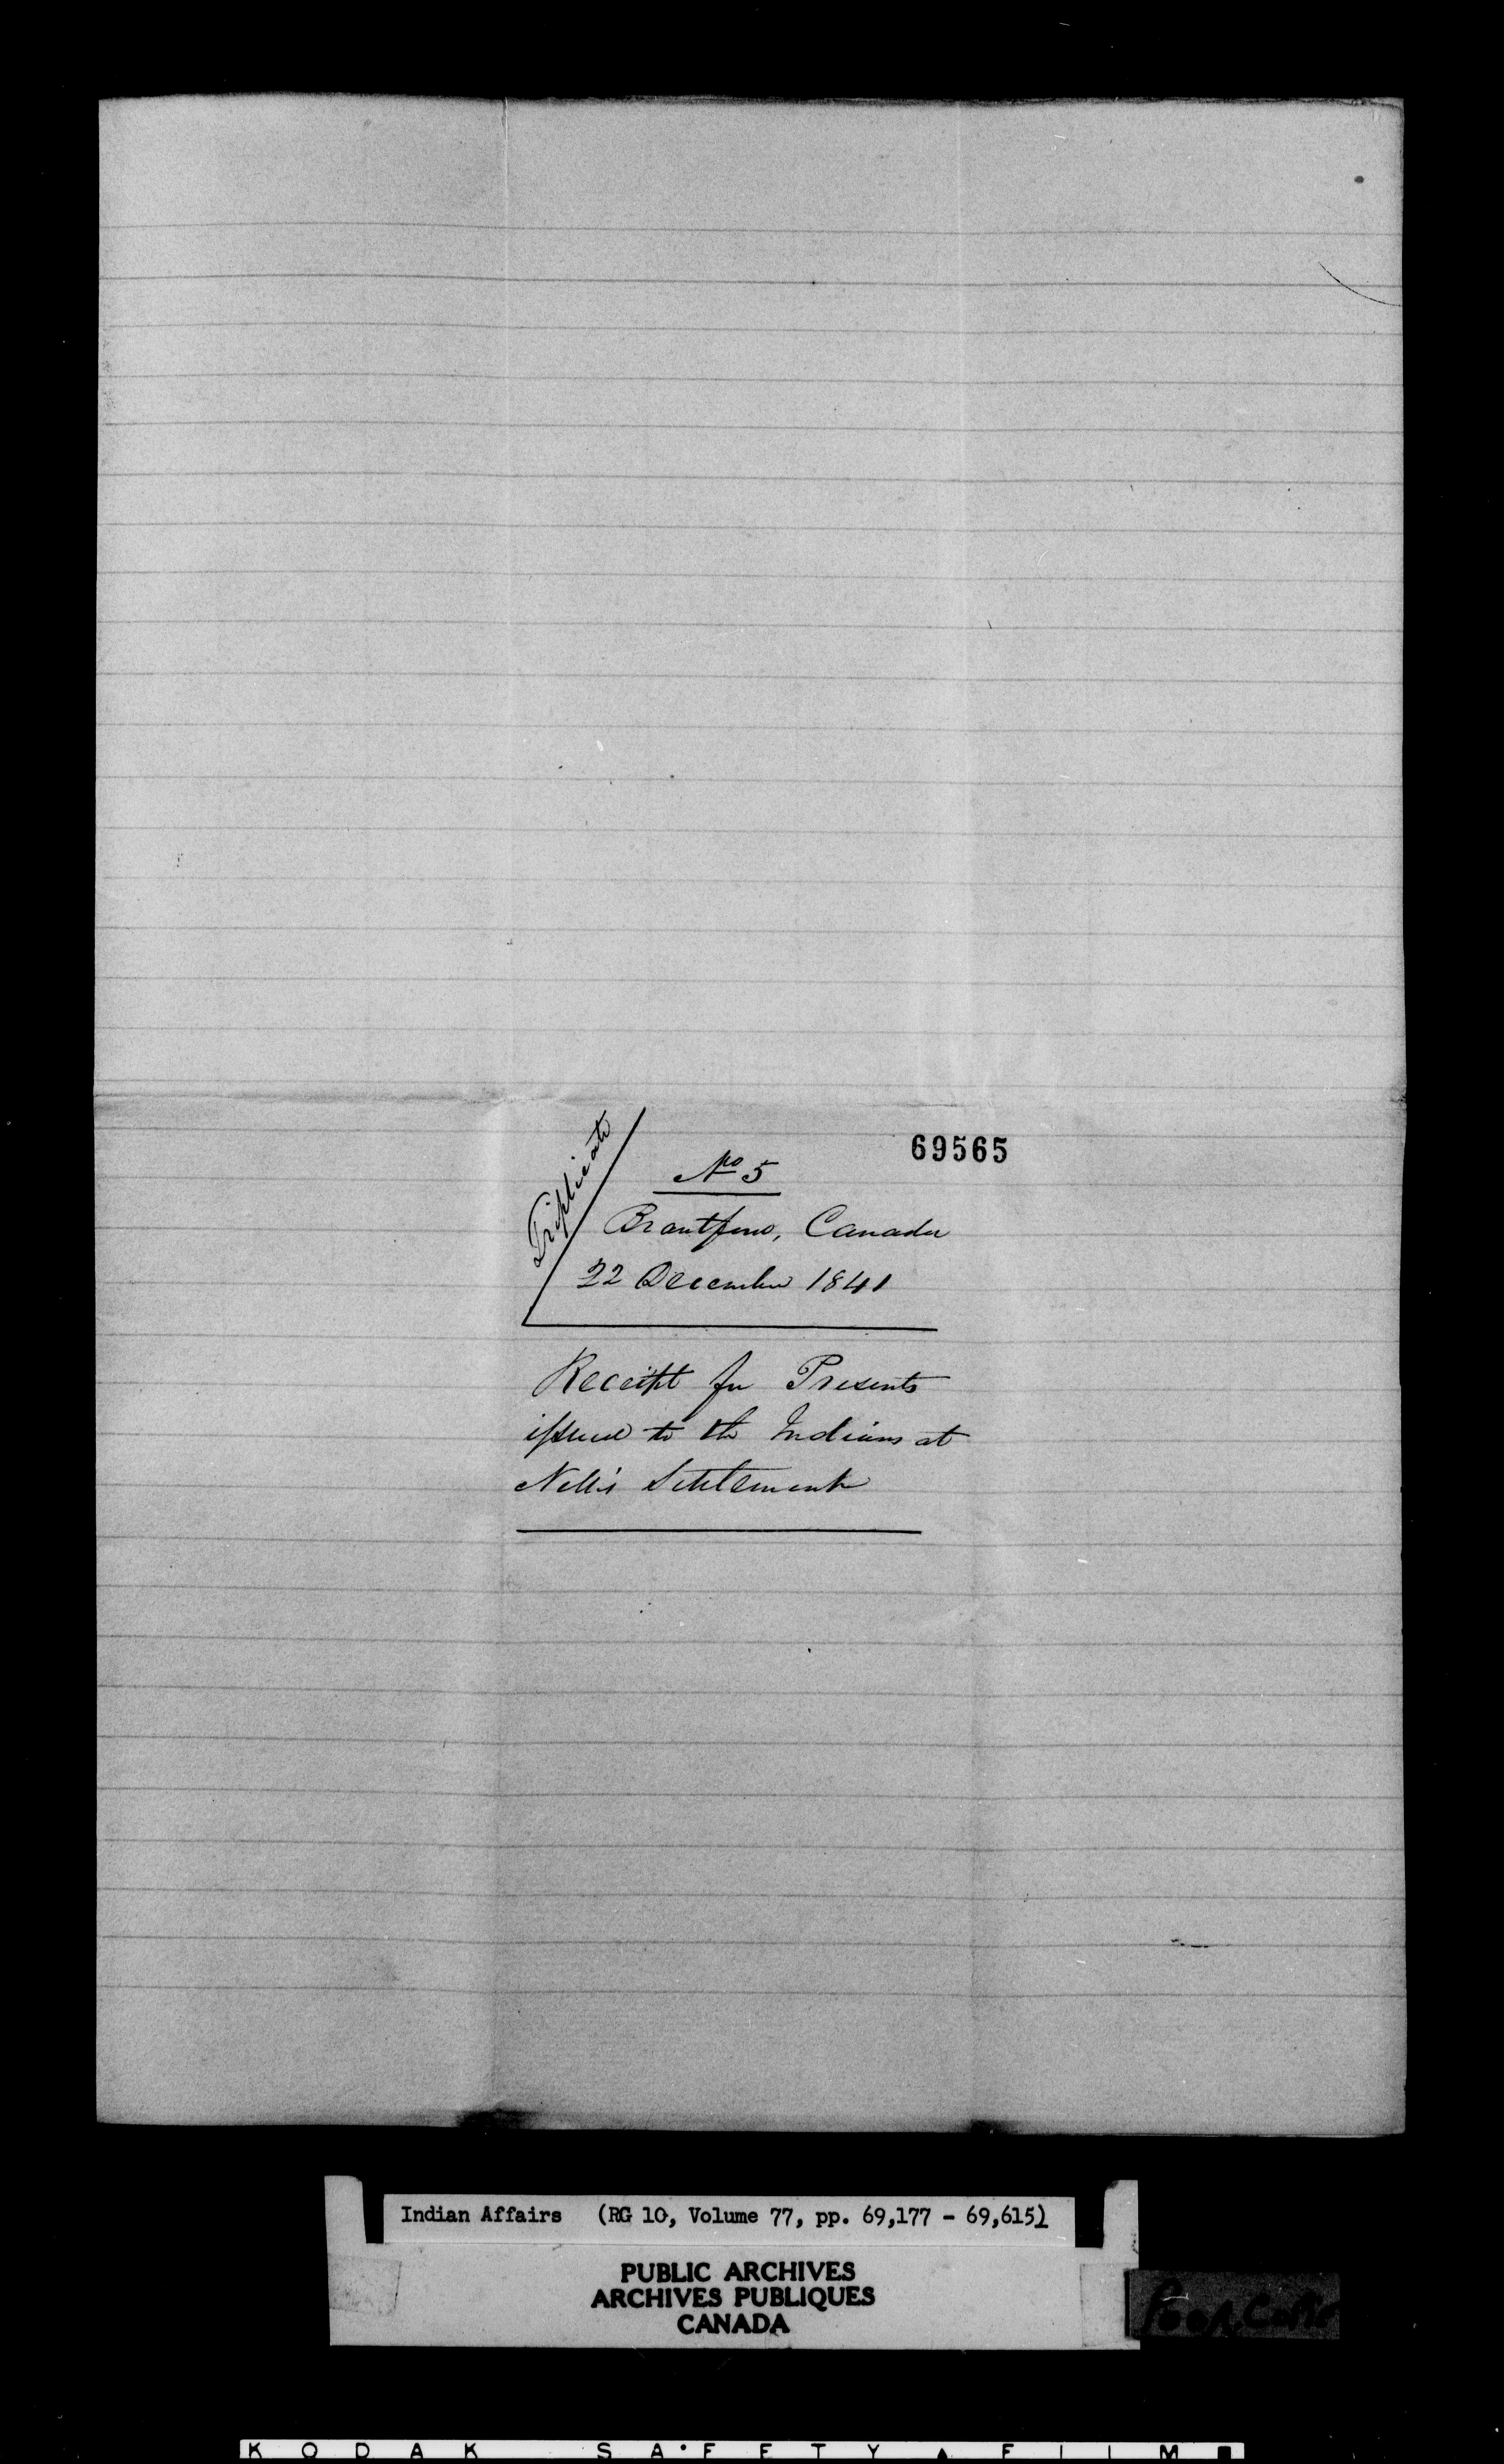 69565
Triplicate
No 5
Brantford, Canada
22 December 1841
Receipt for Presents
issued to the Indians at
Nelli's Settlement
Indian Affairs (RG 10, Volume 77, pp. 69,177 - 69,615)
PUBLIC ARCHIVES
ARCHIVES PUBLIQUES
CANADA
Poor Copie
KODAK SAFETY FILM